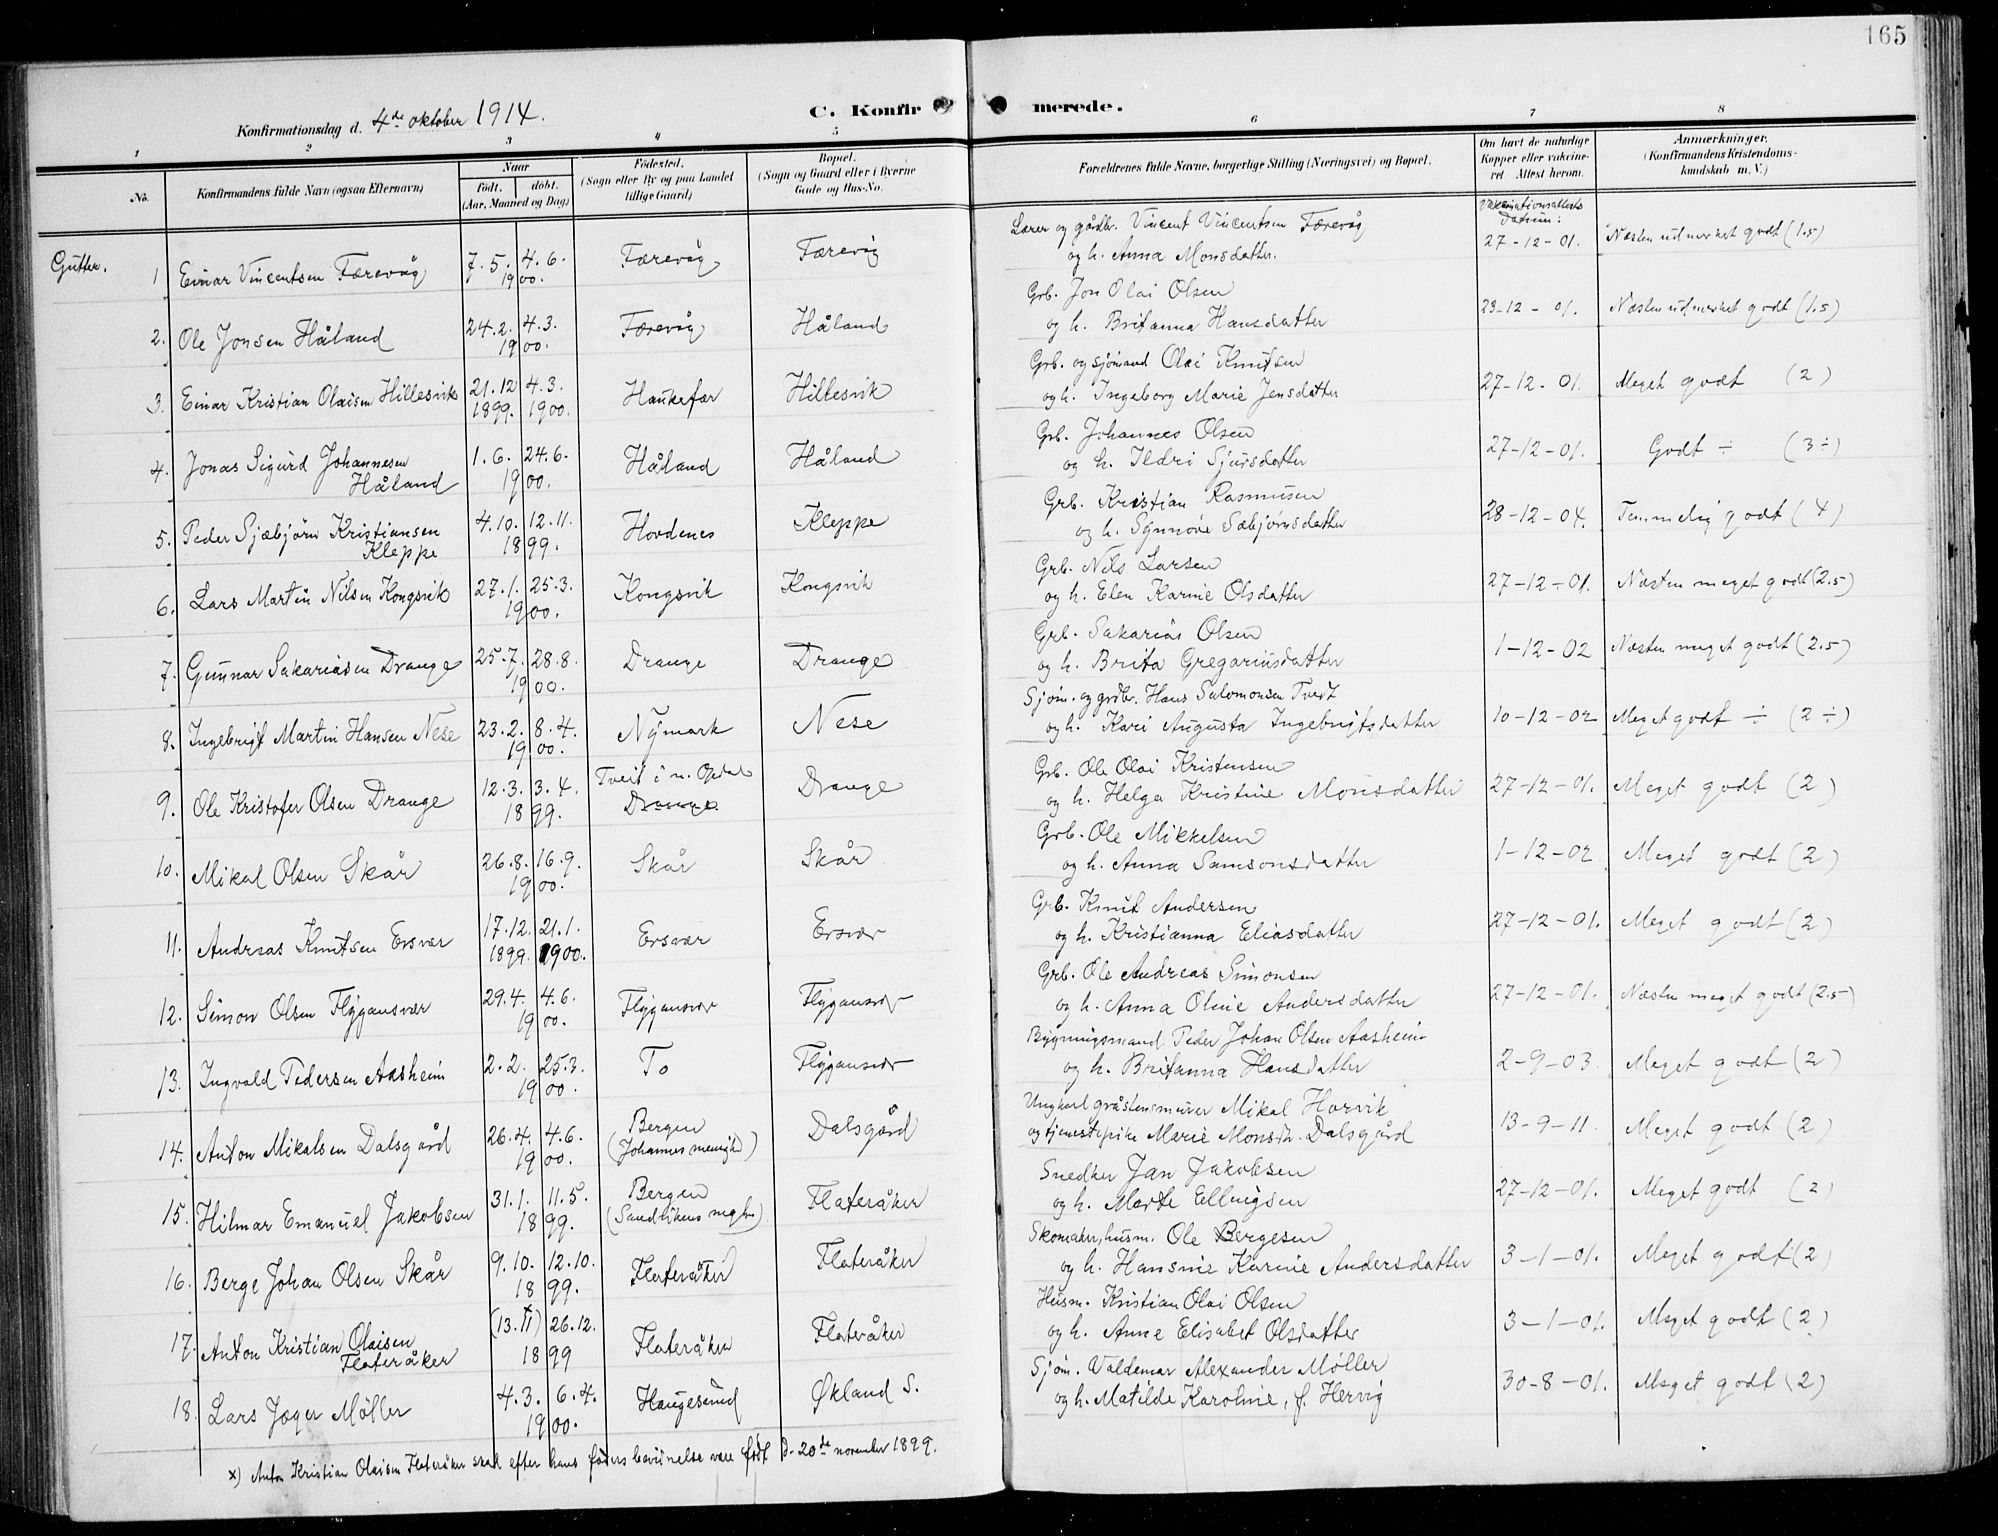 165
Konfirmationsdag d. 4de oktober 1914.
C. Konfirmerede.
1 2 3 4 5 6 7 8
No.
Konfirmandens fulde Navn (ogsaa Efternavn)
Naar
født. døbt.
(Aar, Maaned og Dag)
Fødested.
(Sogn eller By og paa Landet
tillige Gaard)
Bopæl.
(Sogn og Gaard eller i Byerne
Gade og Hus-No.
Forældrenes fulde Navne, borgerlige Stilling (Næringsvei) og Bopæl.
Om havt de naturlige
Kopper eller vakcine-
ret. Attest herom.
Anmærkninger.
(Konfirmandens Kristendoms-
kundskab m. V.)
Vaksinationsattests
Datum:
Gutter.
1 Einar Vincentsen Færevåg 7.5. 4.6. 1900. Færevåg Færevåg Lærer og gårdbr. Vincent Vincentsen Færevåg
og h. Anna Monsdatter. 27-12-01. Næsten udmerket godt (1.5)
2. Ole Jonsen Håland 24.2. 4.3. 1900. Færevåg Håland Grb. Jon Olai Olsen
og h. Britanna Hansdatter 23-12-01. Næsten udmerket godt (1.5)
3. Einar Kristian Olaisen Hillesvik 21.12 1899. 4.3. 1900. Haukefær Hillesvik Grb. og sjömand Olai Knutsen
og h. Ingeborg Marie Jensdatter 27-12-01. Meget godt (2)
4. Jonas Sigurd Johannesen
Håland 1.6. 24.6. 1900. Håland Håland Grb. Johannes Olsen
og h. Ildri Sjursdatter 27-12-01. Godt ÷ (3÷)
5. Peder Sjæbjörn Kristiansen
Kleppe 4.10. 12.11. 1899. Hovdenes Kleppe Grb. Kristian Rasmussen
og h. Synnöve Sæbjörnsdatter 28-12-04. Temmelig godt (4)
6. Lars Martin Nilsen Kongsvik 27.1. 25.3. 1900. Kongsvik Kongsvik Grb. Nils Larsen
og h. Elen Karine Olsdatter 27-12-01. Næsten meget godt (2.5)
7. Gunnar Sakariasen Drange 25.7. 28.8. 1900. Drange Drange Grb. Sakarias Olsen
og h. Brita Gregoriusdatter 1-12-02 Næsten meget godt (2.5)
8. Ingebrigt Martin Hansen Nese 23.2. 8.4. 1900. Nymark Nese Sjöm. og grdbr. Hans Salomonsen Tvedt
og h. Kari Augusta Ingebrigtsdatter 10-12-02 Meget godt ÷ (2÷)
9. Ole Kristofer Olsen Drange 12.3. 3.4. 1899. Tveit i n. Opdal
Drange Drange Grb. Ole Olai Kristensen
og h. Helga Kristine Monsdatter 27-12-01. Meget godt (2)
10. Mikal Olsen Skår 26.8. 16.9. 1900. Skår Skår Grb. Ole Mikkelsen
og h. Anna Samsonsdatter 1-12-02 Meget godt (2)
11. Andreas Knutsen Ersvær 17.12. 1899. 21.1. 1900. Ersvær Ersvær Grb. Knut Andersen
og h. Kristianna Eliasdatter 27-12-01. Meget godt (2)
12. Simon Olsen Flygansvær 29.4. 4.6. 1900. Flygansvær Flygansvær Grb. Ole Andreas Simonsen
og h. Anna Oline Andersdatter 27-12-01. Næsten meget godt (2.5)
13. Ingvald Pedersen Aasheim 2.2. 25.3. 1900. To Flygansvær Bygningsmand Peder Johan Olsen Aasheim
og h. Britanna Hansdatter 2-9-03. Meget godt (2)
14. Anton Mikalsen Dalsgård 26.4. 4.6. 1900. Bergen
(Johannes menighd) Dalsgård Ungkarl gråstensmurer Mikal Horvik
og tjenestepike Marie Monsdtr. Dalsgård 13-9-11. Meget godt (2)
15. Hilmar Emanuel Jakobsen 31.1. 11.5. 1899. Bergen
(Sandvikens mghd) Flateråker Snedker Jan Jakobsen
og h. Marte Ellingsen 27-12-01. Meget godt (2)
16. Berge Johan Olsen Skår 9.10. 12.10. 1899. Flateråker Flateråker Skomaker, husm. Ole Bergesen
og h. Hansine Karine Andersdatter 3-1-01. Meget godt (2)
17. Anton Kristian Olaisen
Flateråker (13.11) x 26.12. 1899 Flateråker Flateråker Husm. Kristian Olai Olsen
og h. Anne Elisabet Olsdatter 3-1-01. Meget godt (2)
18. Lars Jæger Möller 4.3. 6.4. 1900. Haugesund Økland S. Sjöm. Valdemar Alexander Møller
og h. Matilde Karoline, f. Hervig 30-8-01. Meget godt (2)
x) Anton Kristian Olaisen Flateråker skal efter hans faders bevidnelse være født d. 20de november 1899.